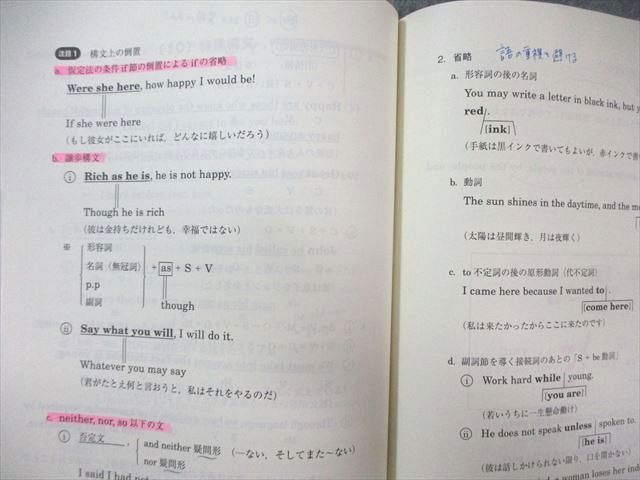 注題1 構文上の倒置
a. 仮定法の条件 if 節の倒置による if の省略
Were she here, how happy I would be!
If she were here
(もし彼女がここにいれば, どんなに嬉しいだろう)
b. 譲歩構文
ⓘ Rich as he is, he is not happy.
Though he is rich
(彼は金持ちだけれども, 幸福ではない)
※ 形容詞
名詞〈無冠詞〉
p.p
副詞
+ as + S + V
though
ⓘⓘ Say what you will, I will do it.
Whatever you may say
(君がたとえ何と言おうと, 私はそれをやるのだ)
c. neither, nor, so 以下の文
ⓘ 否定文, and neither 疑問形
nor 疑問形
(―ない, そしてまた~ない)
I said I had not
2. 省略 語の重複を避ける
a. 形容詞の後の名詞
You may write a letter in black ink, but y
red.
[ink]
(手紙は黒インクで書いてもよいが, 赤インクで書
b. 動詞
The sun shines in the daytime, and the mo
(太陽は昼間輝き, 月は夜輝く)
c. to 不定詞の後の原形動詞〈代不定詞〉
I came here because I wanted to.
[come here]
(私は来たかったからここに来たのです)
d. 副詞節を導く接続詞のあとの「S + be動詞」
ⓘ Work hard while young.
[you are]
(若いうちに一生懸命働け)
ⓘⓘ He does not speak unless spoken to.
[he is]
(彼は話しかけられない限り, 口を開かない)
a woman loses her